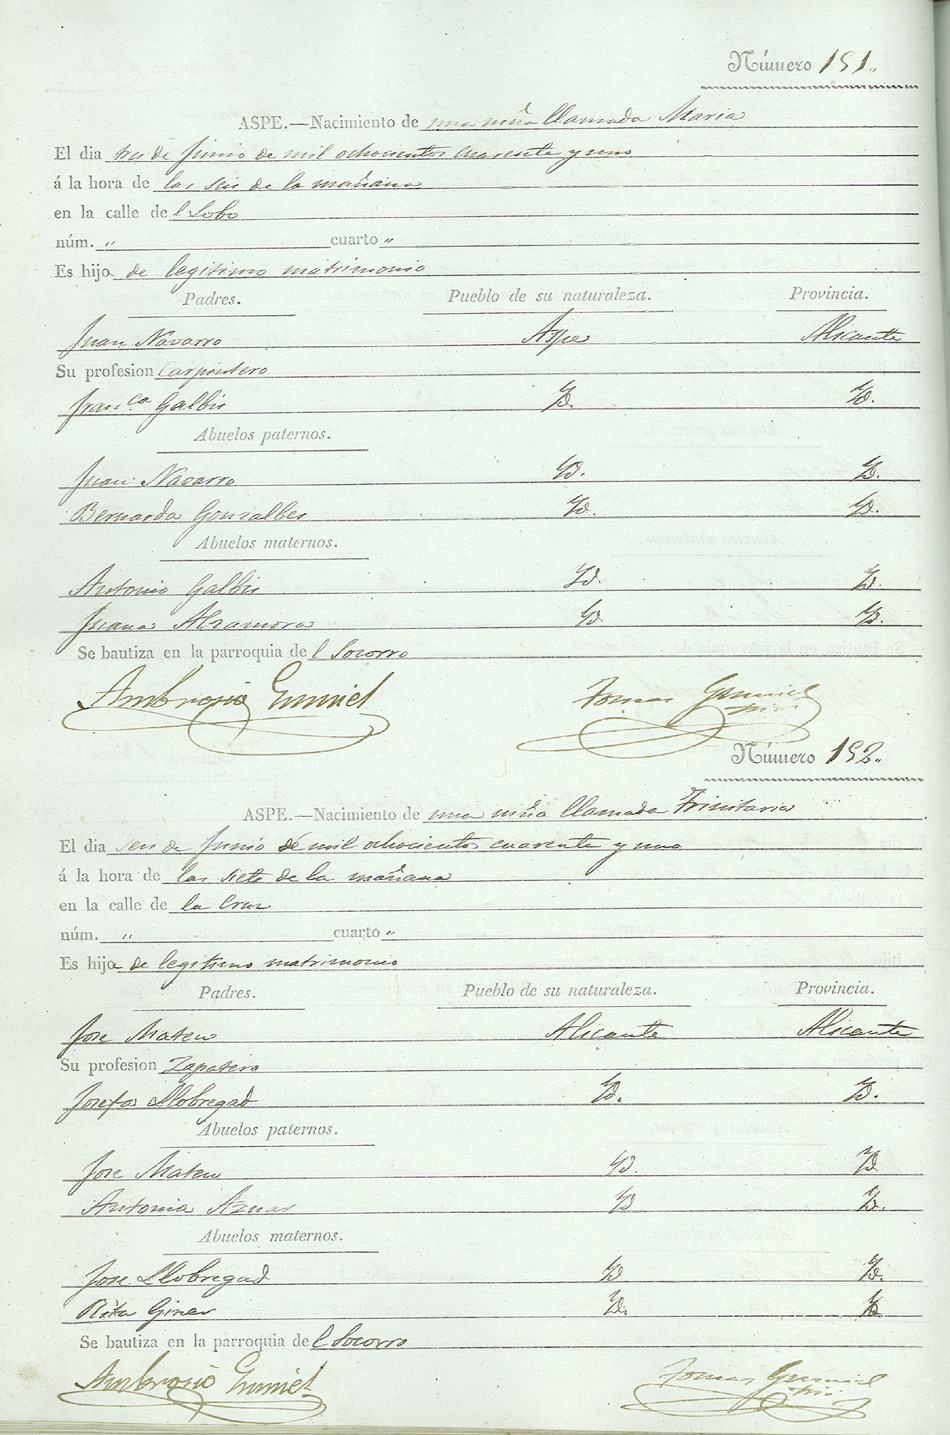 Número 151„
ASPE.—Nacimiento de una niña llamada Maria
El dia tres de Junio de mil ochocientos cuarenta y uno
á la hora de las seis de la mañana
en la calle del Lobo
núm. „ cuarto „
Es hijo de legitimo matrimonio
Padres. Pueblo de su naturaleza. Provincia.
Juan Navarro Aspe Alicante
Su profesion Carpintero
Fran.ca Galbis Yd. Yd.
Abuelos paternos.
Juan Navarro Yd. Yd.
Bernarda Gonzalbes Yd. Yd.
Abuelos maternos.
Antonio Galbis Yd. Yd.
Juana Alzamora Yd Yd.
Se bautiza en la parroquia del Socorro
Ambrosio Gumiel Tomas Gumiel
Número 152„
ASPE.—Nacimiento de una niña llamada Trinitaria
El dia seis de Junio de mil ochocientos cuarenta y uno
á la hora de las siete de la mañana
en la calle de la Cruz
núm. „ cuarto „
Es hija de legitimo matrimonio
Padres. Pueblo de su naturaleza. Provincia.
Jose Mateu Alicante Alicante
Su profesion Zapatero
Josefa Llobregad Yd. Yd.
Abuelos paternos.
Jose Mateu Yd. Yd
Antonia Aznar Yd Yd.
Abuelos maternos.
Jose Llobregad Yd Yd.
Rita Giner Yd. Yd
Se bautiza en la parroquia del Socorro
Ambrosio Gumiel Tomas Gumiel